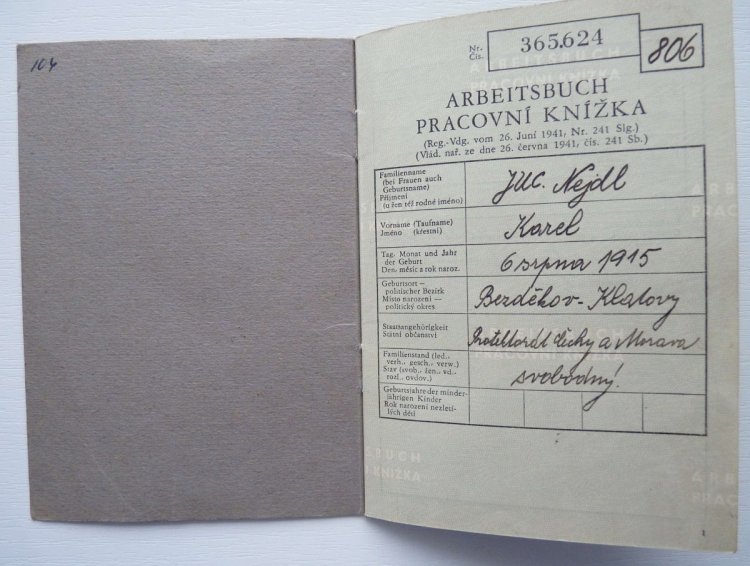 104
Nr.
Čís. 365.624 806
ARBEITSBUCH
PRACOVNÍ KNÍŽKA
(Reg.-Vdg. vom 26. Juni 1941, Nr. 241 Slg.)
(Vlád. nař. ze dne 26. června 1941, čís. 241 Sb.)
Familienname
(bei Frauen auch
Geburtsname)
Příjmení
(u žen též rodné jméno)
JUC. Nejdl
Vorname (Taufname)
Jméno (křestní)
Karel
Tag, Monat und Jahr
der Geburt
Den, měsíc a rok naroz.
6 srpna 1915
Geburtsort —
politischer Bezirk
Místo narození —
politický okres
Bezděkov - Klatovy
Staatsangehörigkeit
Státní občanství
Protektorát Čechy a Morava
Familienstand (led.,
verh., gesch., verw.)
Stav (svob., žen., vd.,
rozl., ovdov.)
svobodný.
Geburtsjahre der minder-
jährigen Kinder
Rok narození nezleti-
lých dětí
ARBEITSBUCH
PRACOVNÍ KNÍŽKA
1